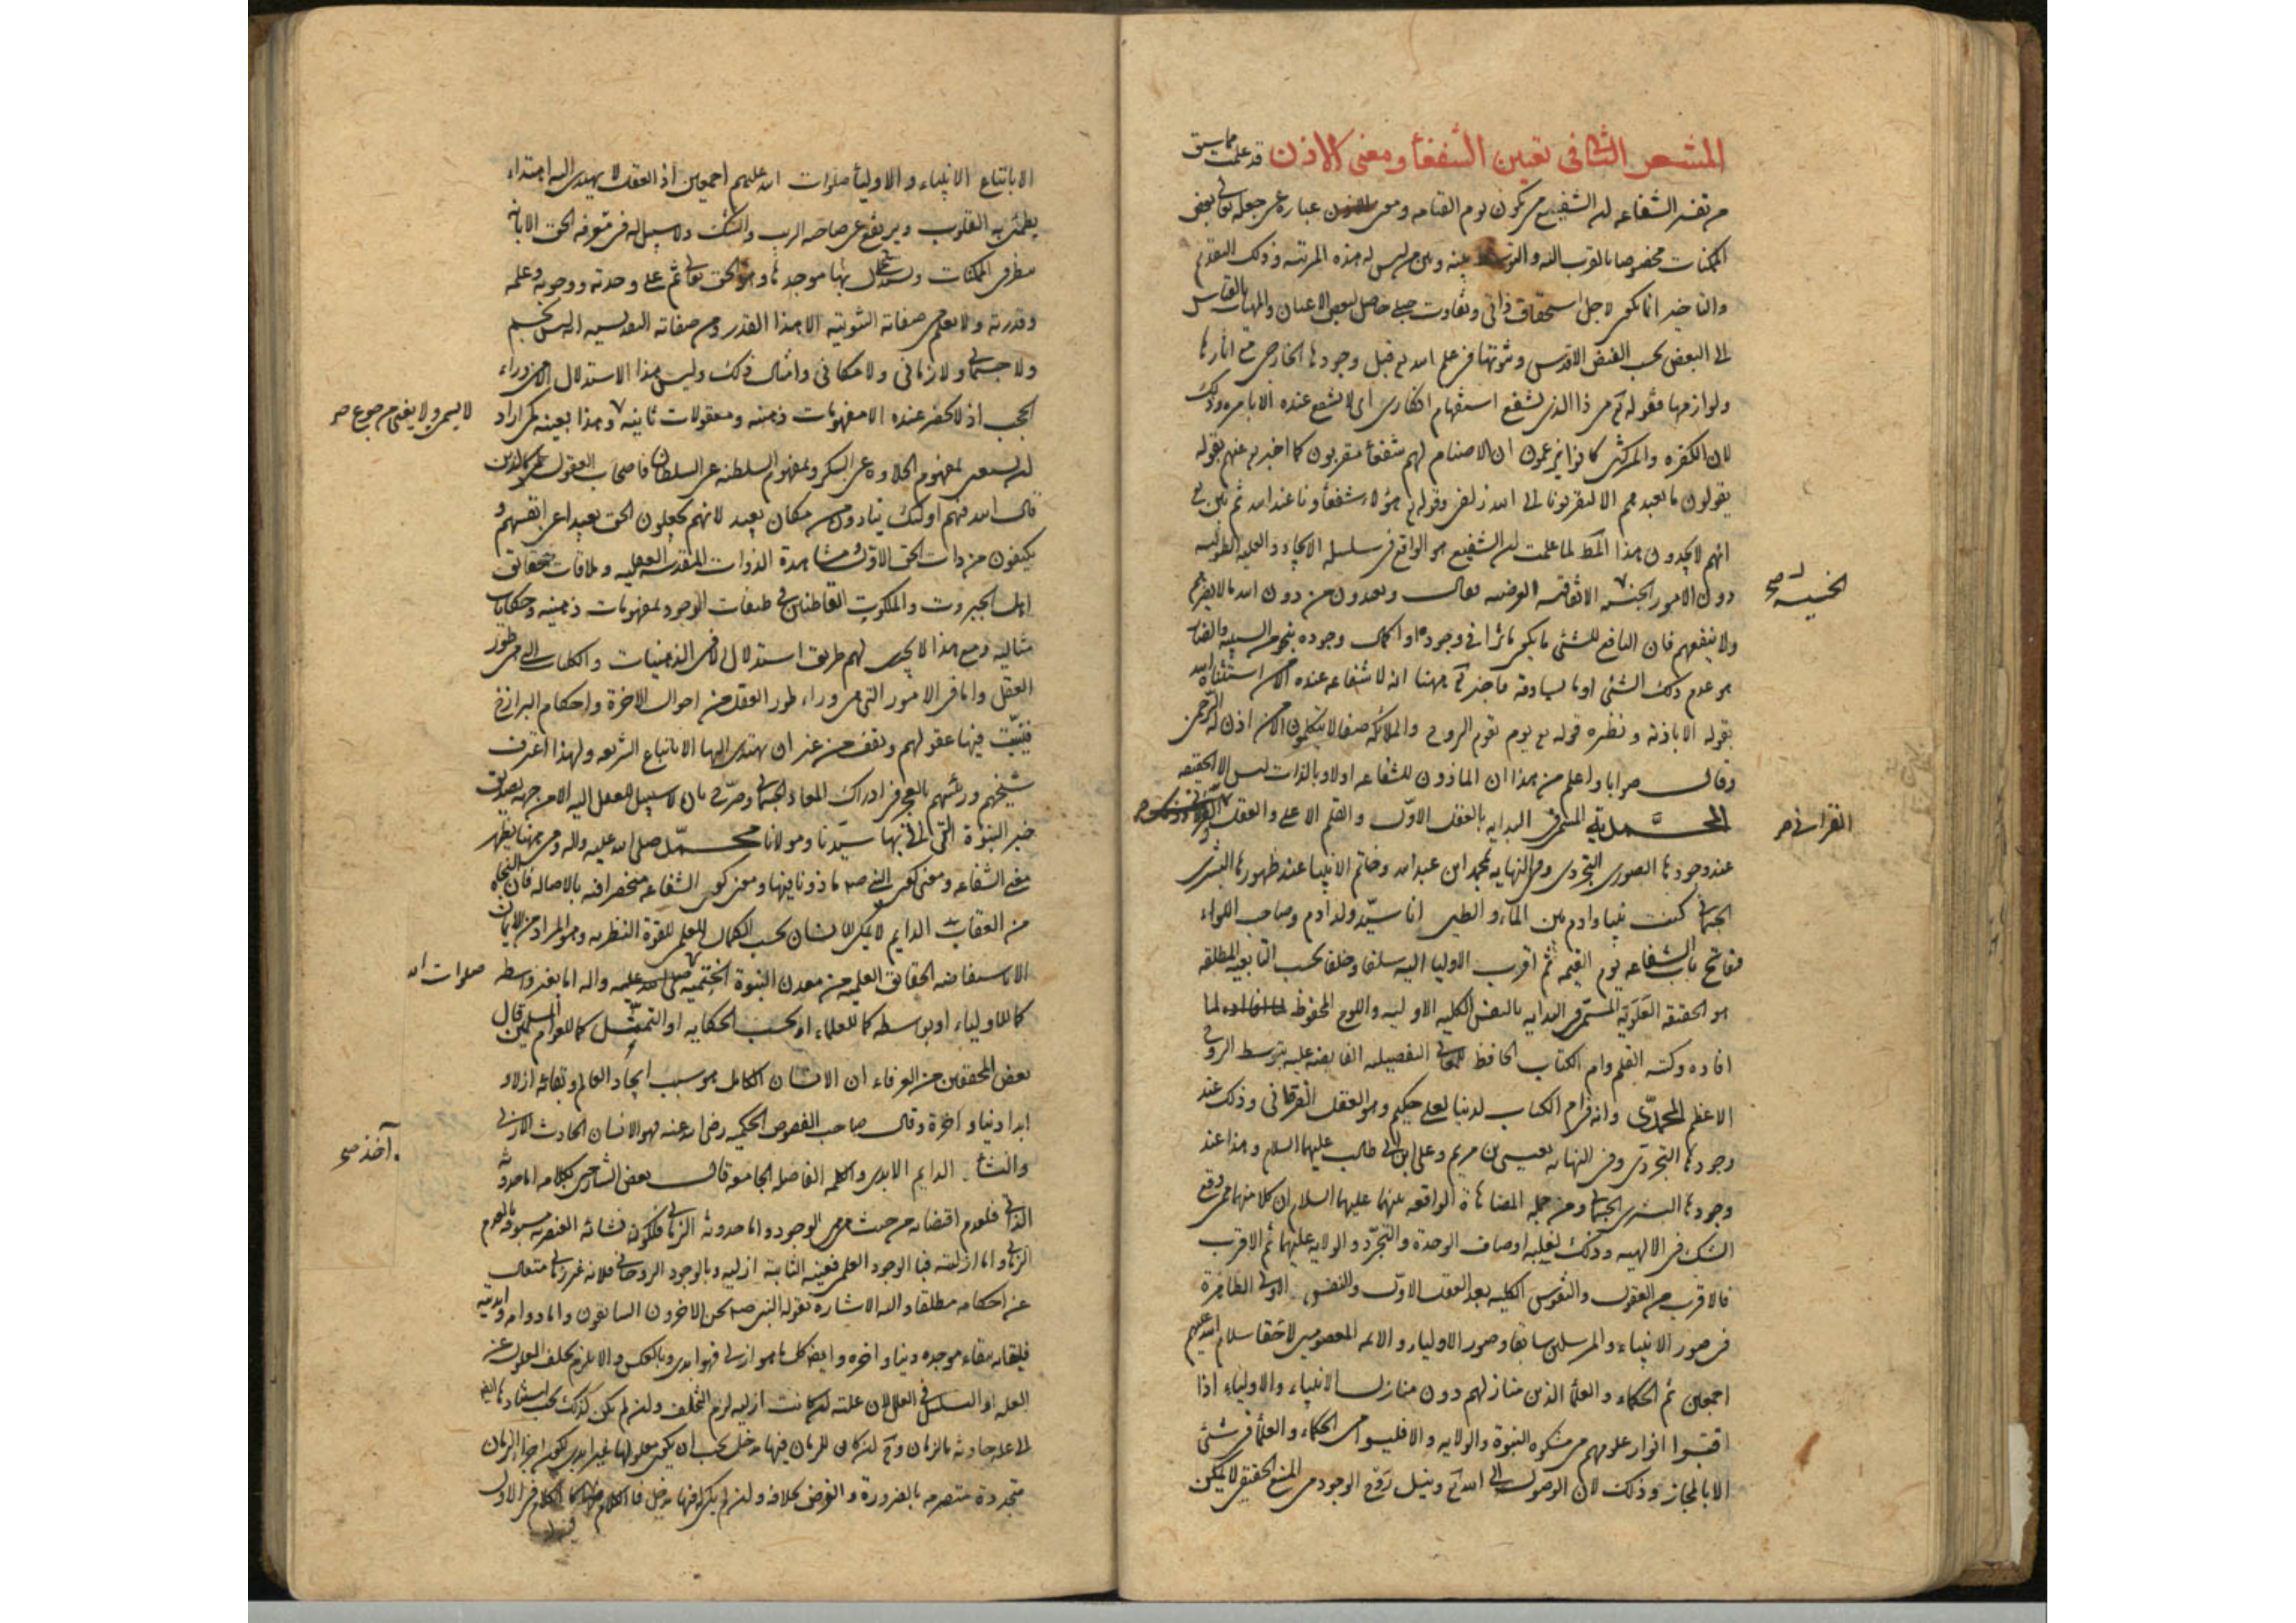 المشعر الثانی فی تعیین الشفعأ ومعنی الاذن قد علمت مما سبق
من تفسیر الشفاعه ان الشفیع من یکون یوم القیامه ومعنی الاذن عباره عن جعله تعالی بعض
الممکنات مخصوصا بالقرب الیه والتوسط بینه وبین من لیس له هذه المرتبه وذلک التقدم
والتاخیر انما یکون لاجل استحقاق ذاتی وتفاوت جبلی حاصل لبعض الاعیان والمهیات بالقیاس
الی البعض بحسب الفیض الاقدس وثبوتها فی علم الله تع قبل وجودها الخارجی مع اثارها
ولوازمها فقوله تع من ذا الذی یشفع استفهام انکاری ای لا یشفع عنده الا بامره وذلک
لان الکفره والمشرکین کانوا یزعمون ان الاصنام لهم شفعأ مقربون کما اخبر به عنهم بقوله
یقولون ما نعبدهم الا لیقربونا الی الله زلفی وقوله تع هؤلاء شفعاؤنا عند الله ثم بین تع
انهم لا یجدون هذا المط لما علمت ان الشفیع هو الواقع فی سلسله الایجاد والعلیه الطولیه
دون الامور الاتفاقیه العرضیه فقال ویعبدون من دون الله ما لا یضرهم
ولا ینفعهم فان النافع للشئی ما یکون مؤثرا فی وجوده او کمال وجوده بنحو من السببیه والضار
هو عدم ذلک الشئی او ما یساوقه فاخبر تع ههنا انه لا شفاعه عنده الا من استثناه الله
بقوله الا باذنه ونظیره قوله تع یوم یقوم الروح والملائکه صفا لا یتکلمون الا من اذن له الرحمن
وقال صوابا واعلم من هذا ان الماذون للشفاعه اولا وبالذات لیس الا الحقیقه
المحمدیه المسمی فی البدایه بالعقل الاول والقلم الاعلی والعقل
عند وجودها الصوری التجردی وفی النهایه بمحمد ابن عبدالله وخاتم الانبیا عند ظهورها البشری
الجسمانی کنت نبیا وادم بین الماء والطین انا سید ولد ادم وصاحب اللواء
وفاتح باب الشفاعه یوم القیمه ثم اقرب الاولیا الیه سلفا وخلفا بحسب التابعیه المطلقه
هو الحقیقه العلویه المسمی فی البدایه بالنفس الکلیه الاولیه واللوح المحفوظ لما
افاده وکتبه القلم وام الکتاب الحافظ للمعانی التفصیلیه الفایضه علیه بتوسط الروح
الاعظم المحمدی وانه فی ام الکتاب لدینا لعلی حکیم وهو العقل الفرقانی وذلک عند
وجودها التجردی وفی النهایه بعیسی بن مریم وعلی ابن ابی طالب علیهما السلام وهذا عند
وجودها البشری الجسمانی ومن جمله المضاهاة الواقعه بینهما علیهما السلام ان کلا منهما ممن وقع
الشک فی الالهیه وذلک لغلبه اوصاف الوحدة والتجرد والولایه علیهما ثم الاقرب
فالاقرب من العقول والنفوس الکلیه بعد العقل الاول والنفس الاولی الظاهرة
فی صور الانبیاء والمرسلین سابقا وصور الاولیاء والائمه المعصومین لاحقا سلام الله علیهم
اجمعین ثم الحکماء والعلمأ الذین منازلهم دون منازل الانبیاء والاولیاء اذا
اقتبسوا انوار علومهم من مشکوه النبوة والولایه والا فلیسوا من الحکماء والعلمأ فی شئی
الا بالمجاز وذلک لان الوصول الی الله تع ونیل روح الوجود من المنبع الحقیقی لا یمکن
الخسیسه صح
القرانی صر
الا باتباع الانبیاء والاولیأ صلوات الله علیهم اجمعین اذ العقل لا یهتدی الیه اهتداء
یطمئن به القلوب ویرتفع عن صاحبه الریب والشک ولا سبیل له فی معرفه الحق الا بانه
ینظر فی الممکنات ویستدل بها علی موجدها وهو الحق تعالی ثم علی وحدته ووجوبه وعلمه
وقدرته ولا یعلم من صفاته الثبوتیه الا هذا القدر ومن صفاته التقدیسیه انه لیس بجسم
ولا جسمانی ولا زمانی ولا مکانی وامثال ذلک ولیس هذا الاستدلال الا من وراء
الحجب اذ لا یحضر عنده الا مفهومات ذهنیه ومعقولات ثانیه وهذا بعینه کمن اراد
ان یستغنی بمفهوم الحلاوه عن السکر وبمفهوم السلطنه عن السلطان فاصحاب العقول کالذین
قال الله فیهم اولئک ینادون من مکان بعید لانهم یجعلون الحق بعیدا عن انفسهم و
یکتفون من ذات الحق الاول ومشاهدة الذوات المقدسه العقلیه وملاقات حقائق
اهل الجبروت والملکوت القاطنین فی طبقات الوجود بمفهومات ذهنیه وحکایات
مثالیه ومع هذا لا یجری لهم طریق استدلال الا فی الذهنیات والکلیات التی هی طور
العقل واما فی الامور التی هی وراء طور العقل من احوال الاخرة واحکام البرازخ
فتثبت فیها عقولهم وتقف من غیر ان یهتدی الیها الا باتباع الشریعه ولهذا اعترف
شیخهم ورئیسهم بالعجز فی ادراک المعاد الجسمانی وصرح بان لا سبیل للعقل الیه الا من جهه تصدیق
خبر النبوة التی اتی بها سیدنا ومولانا محمد صلی الله علیه واله ومن ههنا یظهر
معنی الشفاعه ومعنی کون النبی صم ماذونا فیها ومعنی کون الشفاعه منحصرا فیه بالاصاله فان النجاه
من العقاب الدایم لا یمکن للانسان بحسب الکمال العلمی للقوة النظریه وهو المراد من الایمان
الا باستفاضه الحقایق العلمیه من معدن النبوة الختمیه علیه واله اما بغیر واسطه
کما للاولیاء او بواسطه کما للعلماء او بحسب الحکایه او التمثیل کما للعوام المسلمین قال
بعض المحققین من العرفاء ان الانسان الکامل هو سبب ایجاد العالم وبقائه ازلا و
ابدا ودنیا واخرة وقال صاحب الفصوص الحکمیه رضی الله عنه فهو الانسان الحادث الازلی
والنشأ الدایم الابدی والکلمه الفاصله الجامعه قال بعض الشارحین لکلامه اما حدوثه
الذاتی فلعدم اقتضائه من حیث هی هی الوجود واما حدوثه الزمانی فلکون نشائه العنصریه مسبوقه بالعدم
الزمانی واما ازلیته فبالوجود العلمی فعینه الثابته ازلیه وبالوجود الروحانی فلانه غیر زمانی متعال
عن احکامه مطلقا والیه الاشاره بقوله النبی صم نحن الاخرون السابقون واما دوامه وابدیته
فلبقائه ببقاء موجده دنیا واخره وایضا کل ما هو ازلی فهو ابدی وبالعکس والا یلزم تخلف المعلول عن
العله او التسلسل فی العلل لان علته ان کانت ازلیه لزم التخلف وان لم یکن کذلک یجب استنادها ایضا
الی عله حادثه بالزمان وح ان کان للزمان فیها مدخل یجب ان یکون معلولها غیر ابدی لکون اجزاء الزمان
متجددة متصرمه بالضرورة والفرض بخلافه وان لم یکن فیها مدخل فالکلام فیها کالکلام فی الاول
لا یسمن ولا یغنی من جوع صر
صلوات الله
آخذ صح